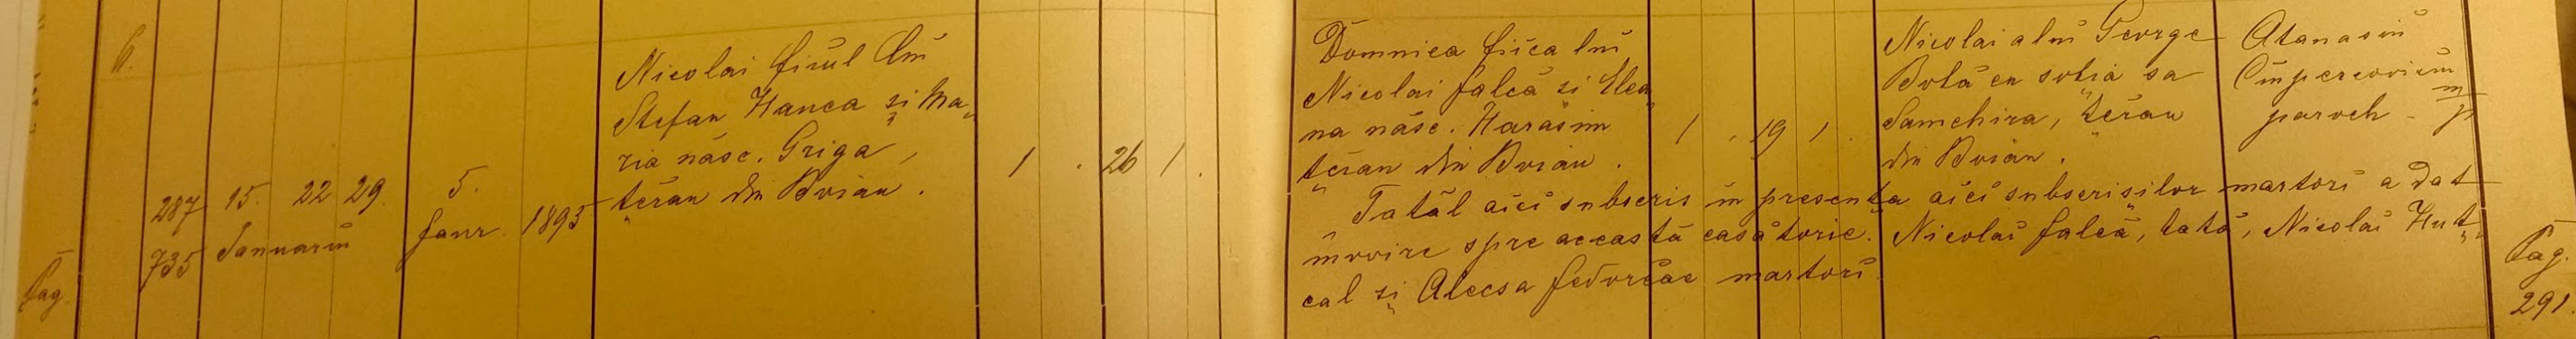 6.
287 15. 22 29. 5.
735 Januariŭ faur 1893
Nicolai fiiul lui
Stefan Hanca și Ma„
ria născ. Griga,
țĕran din Boian.
1 . 26 1 .
Domnica fiica lui
Nicolai Falcă și Elea„
na născ. Harasim
țĕran din Boian.
1 . 19 1 .
Nicolai alui George
Botă cu soția sa
Samchira, țĕran
din Boian.
Atanasiŭ
paroch
Tatăl aici subscris in presența aici subscrisilor martori a dat
invoire spre aceastā casătorie. Nicolai Falcă, tată, Nicolai Huț„
cal și Alecsa Fedorčac martori.
Pag.
Pag.
291